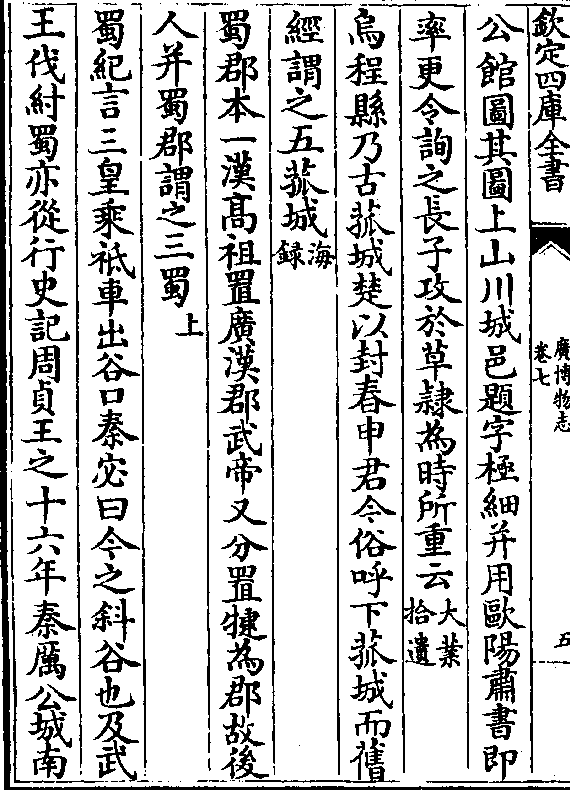 欽定四庫全書
廣博物志
卷七
五
公館圖其圖上山川城邑題字極細并用歐陽肅書即
率更令詢之長子攻於草隷為時所重云大業拾遺
烏程縣乃古菰城楚以封春申君今俗呼下菰城而舊
經謂之五菰城海録
蜀郡本一漢髙祖置廣漢郡武帝又分置犍為郡故後
人并蜀郡謂之三蜀上
蜀紀言三皇乘祗車出谷口秦宓曰今之斜谷也及武
王伐紂蜀亦從行史記周貞王之十六年秦厲公城南